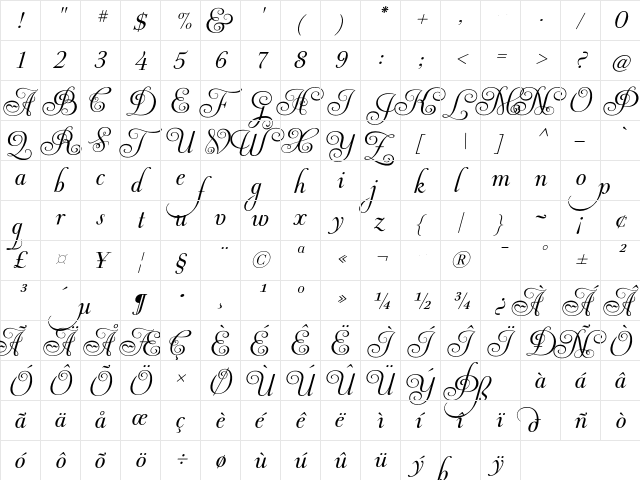 ! " # $ % & ' ( ) * + , . / 0
1 2 3 4 5 6 7 8 9 : ; < = > ? @
A B C D E F G H I J K L M N O P
Q R S T U V W X Y Z [ | ] ^ – `
a b c d e f g h i j k l m n o p
q r s t u v w x y z { | } ~ ¡ ¢
£ ¤ ¥ ¦ § ¨ © ª « ¬ ® ¯ ° ± ²
³ ´ µ ¶ · ¸ ¹ º » ¼ ½ ¾ ¿ À Á Â
Ã Ä Å Æ Ç È É Ê Ë Ì Í Î Ï Ð Ñ Ò
Ó Ô Õ Ö × Ø Ù Ú Û Ü Ý Þ ß à á â
ã ä å æ ç è é ê ë ì í î ï ð ñ ò
ó ô õ ö ÷ ø ù ú û ü ý þ ÿ